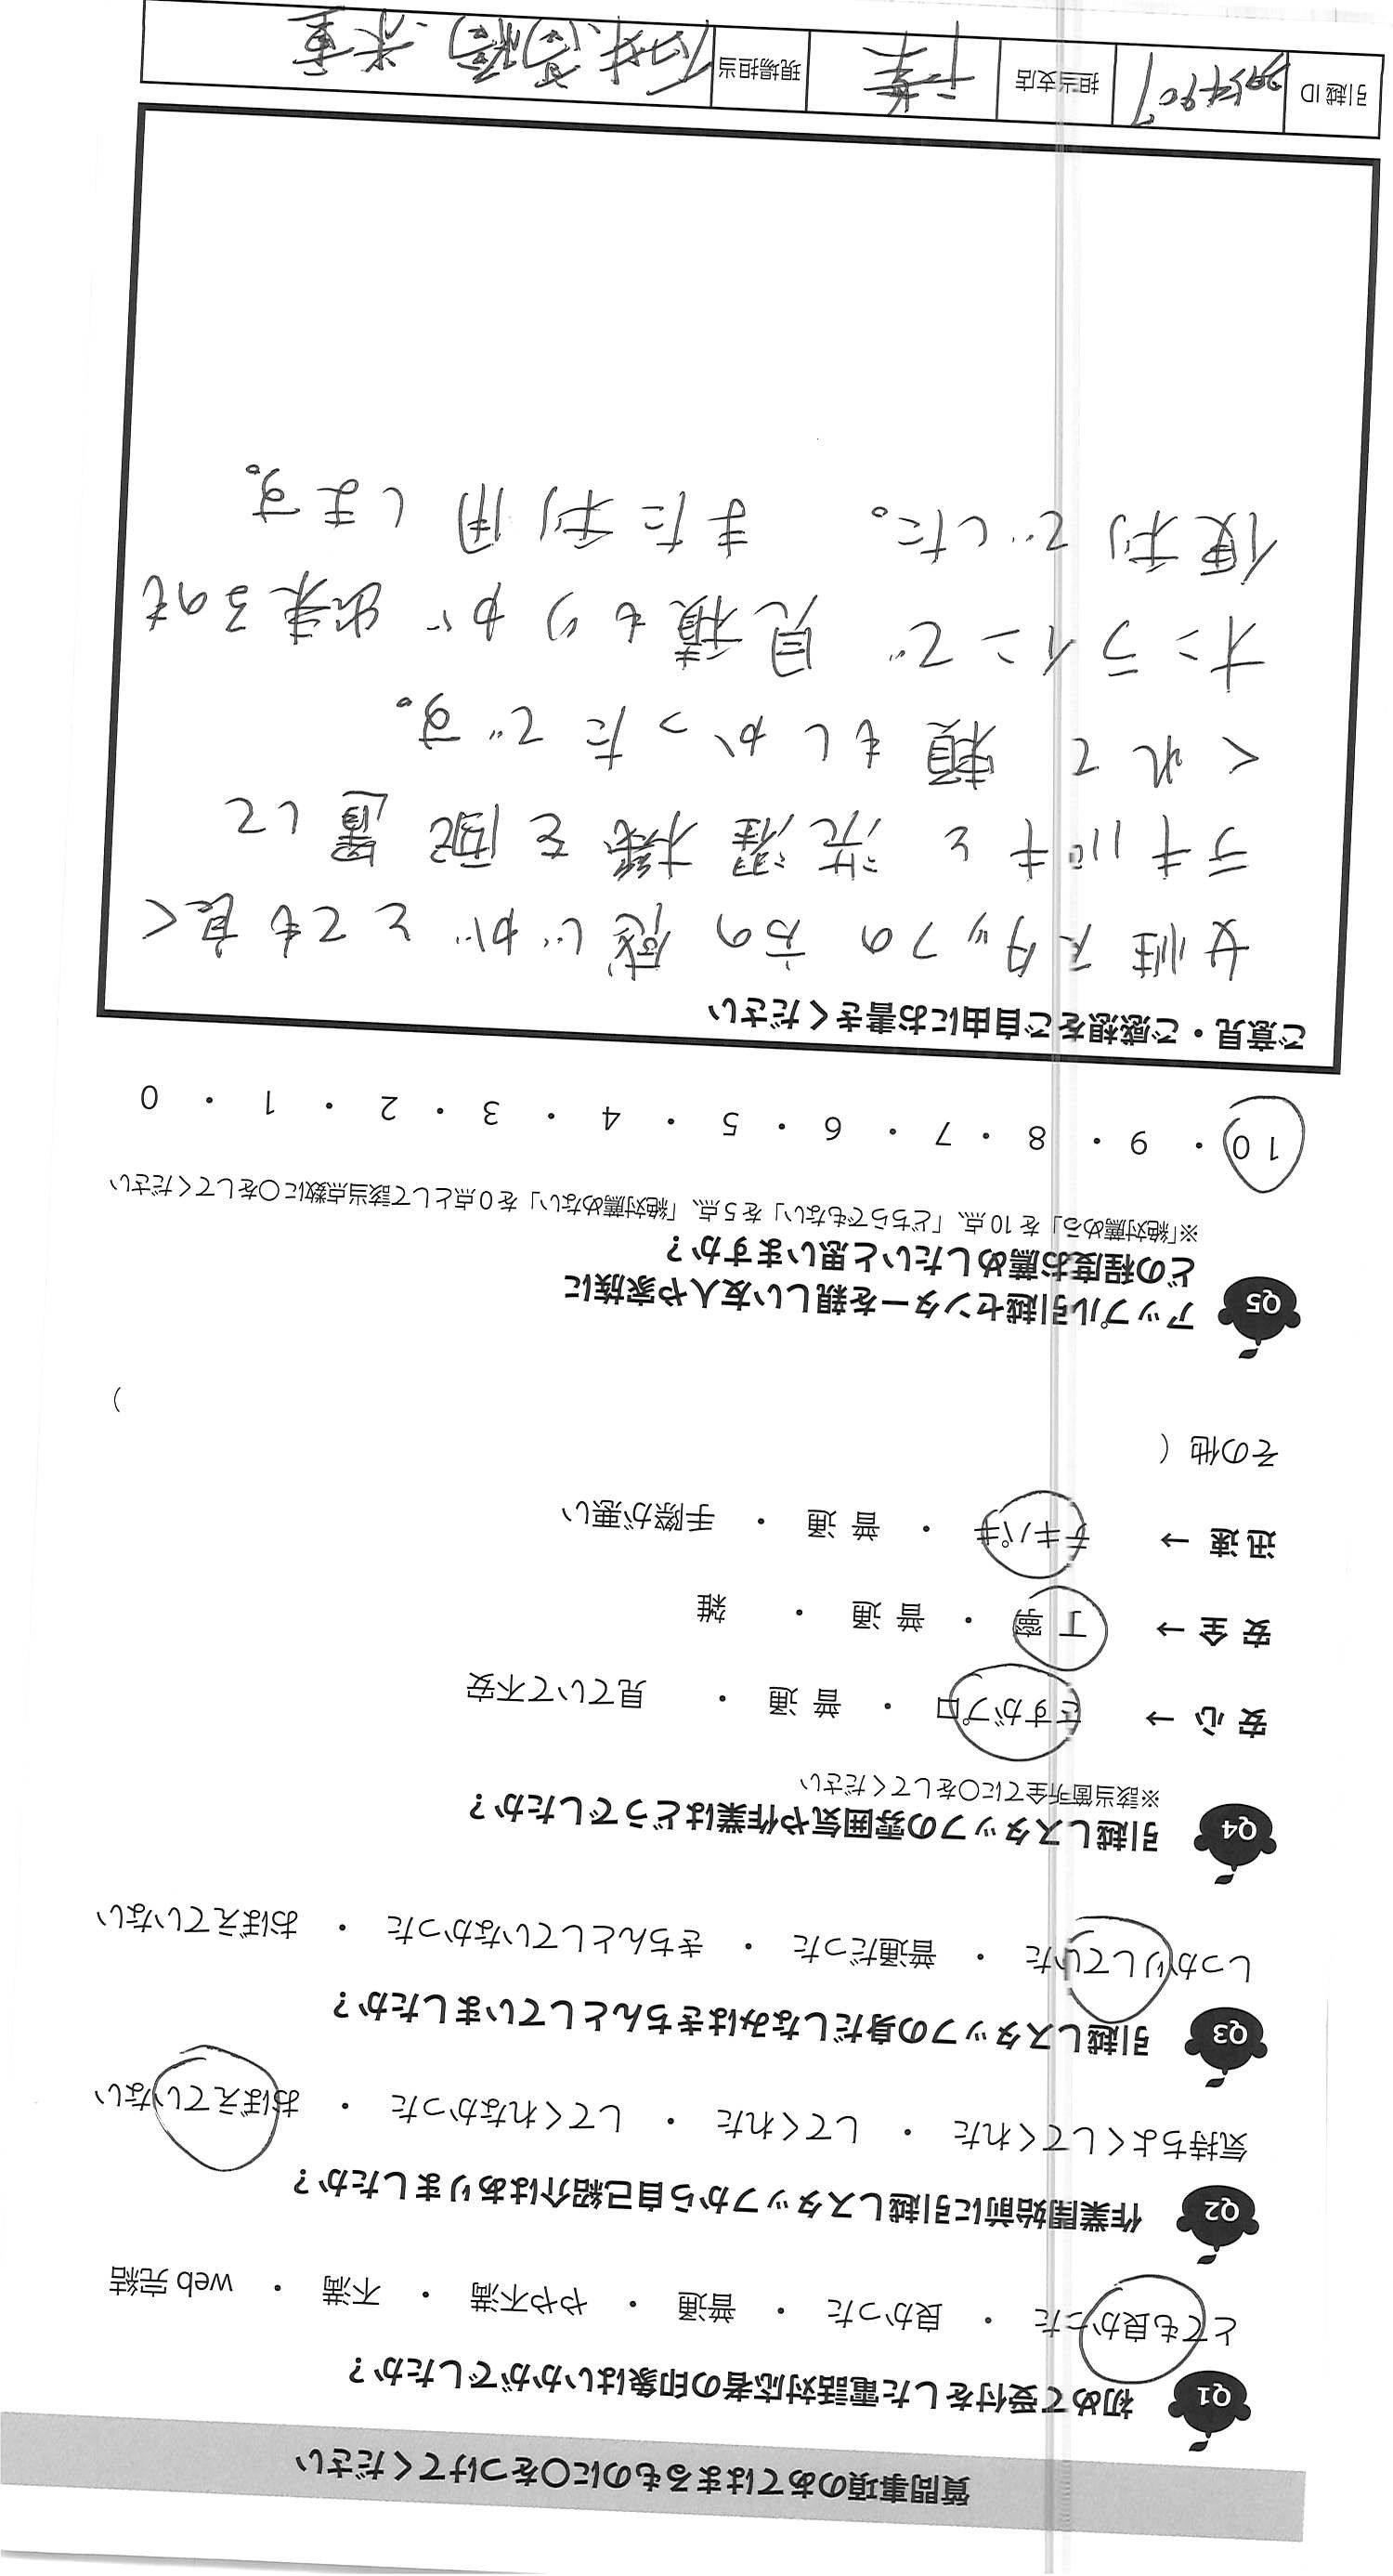 質問事項のあてはまるものに○をつけてください
Q1 初めて受付をした電話対応者の印象はいかがでしたか？
とても良かった ・ 良かった ・ 普通 ・ やや不満 ・ 不満 ・ web 完結
Q2 作業開始前に引越しスタッフから自己紹介はありましたか？
気持ちよくしてくれた ・ してくれた ・ してくれなかった ・ おぼえていない
Q3 引越しスタッフの身だしなみはきちんとしていましたか？
しっかりしていた ・ 普通だった ・ きちんとしていなかった ・ おぼえていない
Q4 引越しスタッフの雰囲気や作業はどうでしたか？
※該当箇所全てに○をしてください
安心 → さすがプロ ・ 普通 ・ 見ていて不安
安全 → 丁寧 ・ 普通 ・ 雑
迅速 → テキパキ ・ 普通 ・ 手際が悪い
その他（ ）
Q5 アップル引越センターを親しい友人や家族に
どの程度お薦めしたいと思いますか？
※「絶対薦める」を10点、「どちらでもない」を5点、「絶対薦めない」を0点として該当点数に○をしてください
10 ・ 9 ・ 8 ・ 7 ・ 6 ・ 5 ・ 4 ・ 3 ・ 2 ・ 1 ・ 0
ご意見・ご感想をご自由にお書きください
女性スタッフの方の感じがとても良く
テキパキと洗濯機を配置して
くれて頼もしかったです。
オンラインで見積もりが出来るのも
便利でした。 また利用します。
引越ID 担当支店 千葉 現場担当 高橋